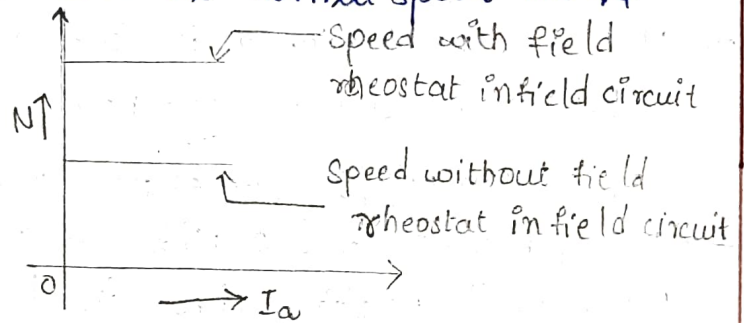 Speed with field
rheostat in field circuit
N↑
Speed without field
rheostat in field circuit
0
→ Ia